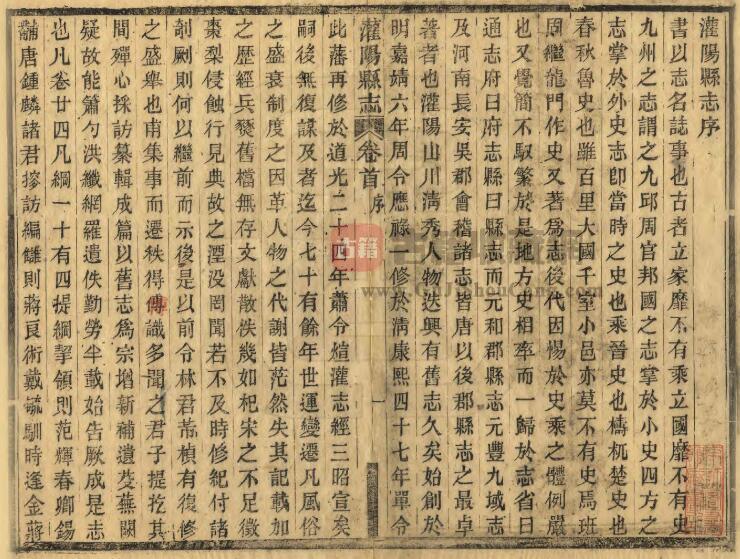 灌陽縣志序
書以志名誌事也古者立家靡不有乘立國靡不有史
九州之志謂之九邱周官邦國之志掌於小史四方之
志掌於外史志卽當時之史也乘晉史也檮杌楚史也
春秋魯史也雖百里大國千室小邑亦莫不有史焉班
周繼龍門作史又著爲志後代因惕於史乘之體例嚴
也又覺簡不馭繁於是地方史相率而一歸於志省曰
通志府曰府志縣曰縣志而元和郡縣志元豐九域志
及河南長安吳郡會稽諸志皆唐以後郡縣志之最卓
著者也灌陽山川清秀人物迭興有舊志久矣始創於
明嘉婧六年周令應祿一修於清康熙四十七年單令
灌陽縣志 卷首 序 一
此藩再修於道光二十四年蕭令煊灌志經三昭宣矣
嗣後無復謀及者迄今七十有餘年世運變遷凡風俗
之盛衰制度之因革人物之代謝皆茫然失其記載加
之歷經兵燹舊檔無存文獻散佚幾如杞宋之不足徵
棗梨侵蝕行見典故之湮没罔聞若不及時修紀付諸
剞劂則何以繼前而示後是以前令林君芾楨有復修
之盛舉也甫集事而遷秩得傳識多聞之君子提挖其
間殫心採訪纂輯成篇以舊志爲宗增新補遺芟蕪闕
疑故能簫勺洪纖網羅遺佚勤勞半載始告厥成是志
也凡卷廿四凡綱一十有四提綱挈領則范輝春卿錫
黼唐鍾麟諸君搜訪編讎則蔣良術戴毓馴時逢金蔣
古籍
www.GuJiShouCang.com